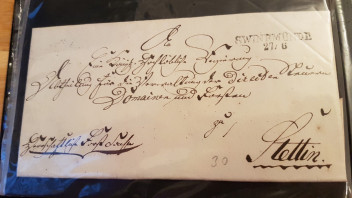 An
SWINEMÜNDE
27/8
Eine Königl. Hochlöbliche Regierung
Abtheilung für die Verwaltung der Direkten Steuern
Domainen und Forsten
zu
Herrschaftliche Forst Sache
30
Stettin.